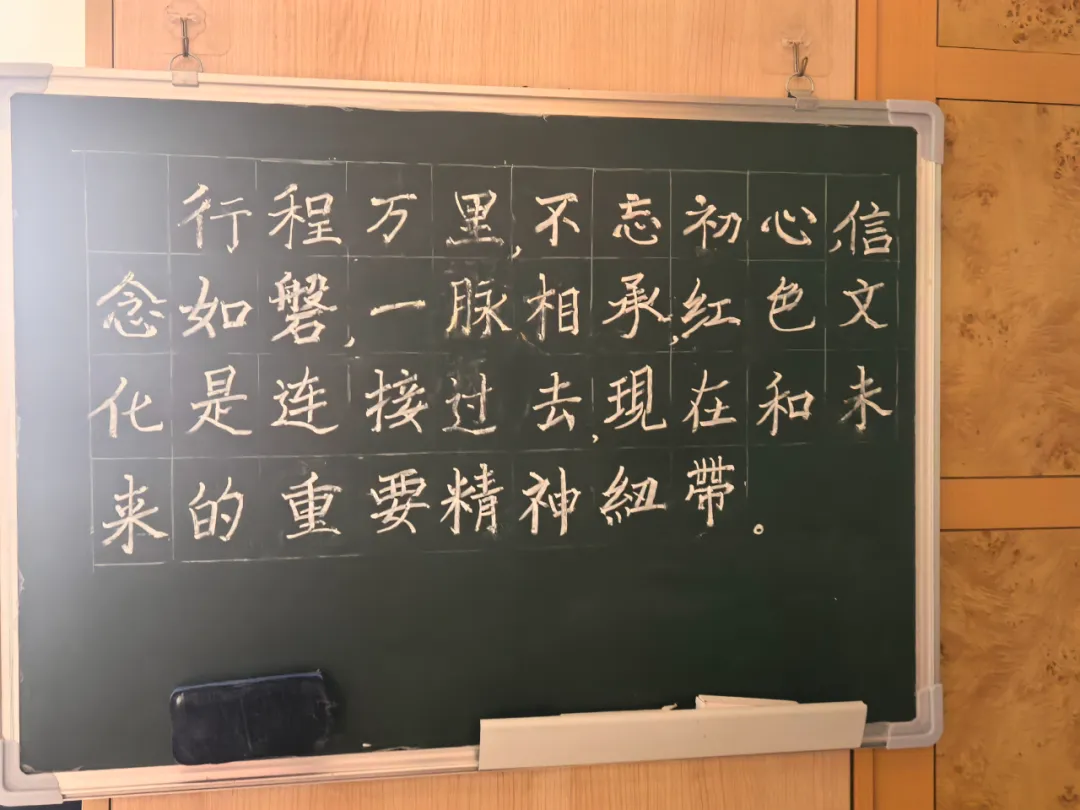 行程万里,不忘初心,信
念如磐,一脉相承,红色文
化是连接过去,現在和未
来的重要精神紐帶。